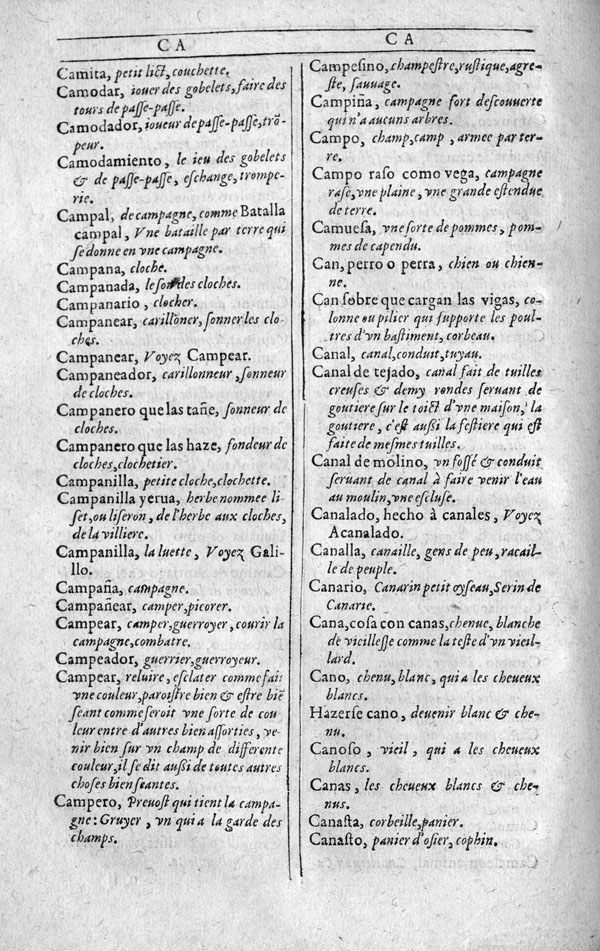 CA
Camita, petit lict, couchette.
Camodar, iouer des gobelets, faire des
tours de passe-passe.
Camodador, ioueur de passe-passe, trõ-
peur.
Camodamiento, le ieu des gobelets
& de passe-passe, eschange, trompe-
rie.
Campal, de campagne, comme Batalla
campal, Vne bataille par terre qui
se donne en vne campagne.
Campana, cloche.
Campanada, le son des cloches.
Campanario, clocher.
Campanear, carillõner, sonner les clo-
ches.
Campanear, Voyez Campear.
Campaneador, carillonneur, sonneur
de cloches.
Campanero que las tañe, sonneur de
cloches.
Campanero que las haze, fondeur de
cloches, clochetier.
Campanilla, petite cloche, clochette.
Campanilla yerua, herbe nommee li-
set, ou liseron, de l'herbe aux cloches,
de la villiere.
Campanilla, la luette, Voyez Gali-
llo.
Campaña, campagne.
Campañear, camper, picorer.
Campear, camper, guerroyer, courir la
campagne, combatre.
Campeador, guerrier, guerroyeur.
Campear, reluire, esclater comme fait
vne couleur, paroistre bien & estre biẽ
seant comme seroit vne sorte de cou
leur entre d'autres bien assorties, ve-
nir bien sur vn champ de differente
couleur, il se dit aussi de toutes autres
choses bien seantes.
Campero, Preuost qui tient la campa-
gne: Gruyer, vn qui a la garde des
champs.
CA
Campesino, champestre, rustique, agre-
ste, sauuage.
Campiña, campagne fort descouuerte
qui n'a aucuns arbres.
Campo, champ, camp, armee par ter-
re.
Campo raso como vega, campagne
rase, vne plaine, vne grande estendue
de terre.
Camuesa, vne sorte de pommes, pom-
mes de capendu.
Can, perro o perra, chien ou chien-
ne.
Can sobre que cargan las vigas, co-
lonne ou pilier qui supporte les poul-
tres d'vn bastiment, corbeau.
Canal, canal, conduit, tuyau.
Canal de tejado, canal fait de tuilles
creuses & demy rondes seruant de
goutiere sur le toict d'vne maison, la
goutiere, c'est aussi la festiere qui est
faite de mesmes tuilles.
Canal de molino, vn fossé & conduit
seruant de canal à faire venir l'eau
au moulin, vne escluse.
Canalado, hecho à canales, Voyez
Acanalado.
Canalla, canaille, gens de peu, racail-
le de peuple.
Canario, Canarin petit oyseau, Serin de
Canarie.
Cana, cosa con canas, chenue, blanche
de vieillesse comme la teste d'vn vieil-
lard.
Cano, chenu, blanc, qui a les cheueux
blancs.
Hazerse cano, deuenir blanc & che-
nu.
Canoso, vieil, qui a les cheueux
blancs.
Canas, les cheueux blancs & che-
nus.
Canasta, corbeille, panier.
Canasto, panier d'osier, cophin.